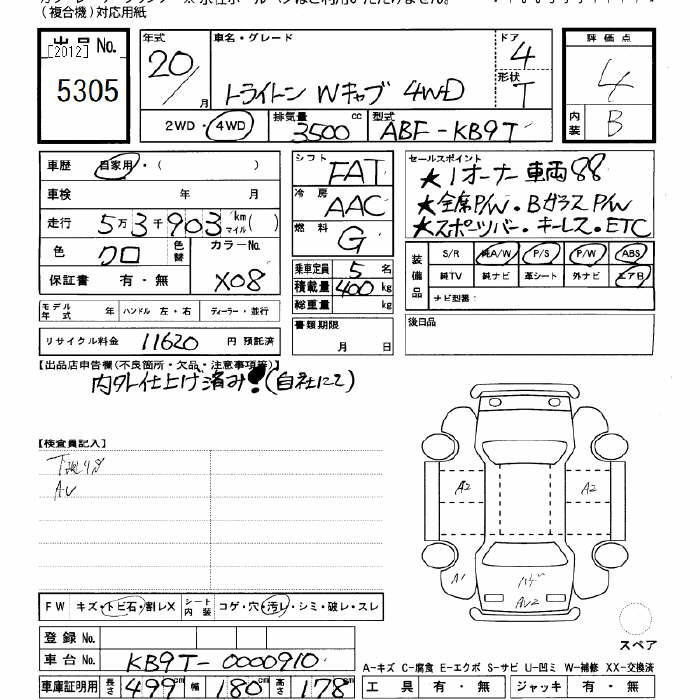 (複合機)対応用紙
出品No.
[2012]
5305
年式
20/
月
車名・グレード
トライトン Wキャブ 4WD
ドア
4
形状
T
2WD・4WD
排気量
3500
cc
型式
ABF-KB9T
評価点
4
内装
B
車歴 自家用・( )
車検 年 月
走行 5万3千903 km マイル( )
色 クロ
色替
カラーNo.
X08
保証書 有・無
シフト FAT
冷房 AAC
燃料 G
乗車定員 5 名
積載量 400 kg
総重量 kg
書類期限
月 日
セールスポイント
★1オーナー車両88
★全席P/W・BガラスP/W
★スポーツバー・キーレス・ETC
装備品
S/R 純A/W P/S P/W ABS
純TV 純ナビ 革シート 外ナビ エアB
ナビ型番:
後日品
モデル年式 年 ハンドル 左・右 ディーラー・並行
リサイクル料金 11620 円 預託済
【出品店申告欄(不良箇所・欠品・注意事項等)】
内外仕上げ済み!(自社にて)
【検査員記入】
AU
A2 A2
A1
AU2
FW キズ・トビ石・割レX シート内装 コゲ・穴・汚レ・シミ・破レ・スレ
登録No.
車台No. KB9T-0000910
車庫証明用 長さ 499 cm 幅 180 cm 高さ 178 cm
スペア
A-キズ C-腐食 E-エクボ S-サビ U-凹ミ W-補修 XX-交換済
工具 有・無 ジャッキ 有・無